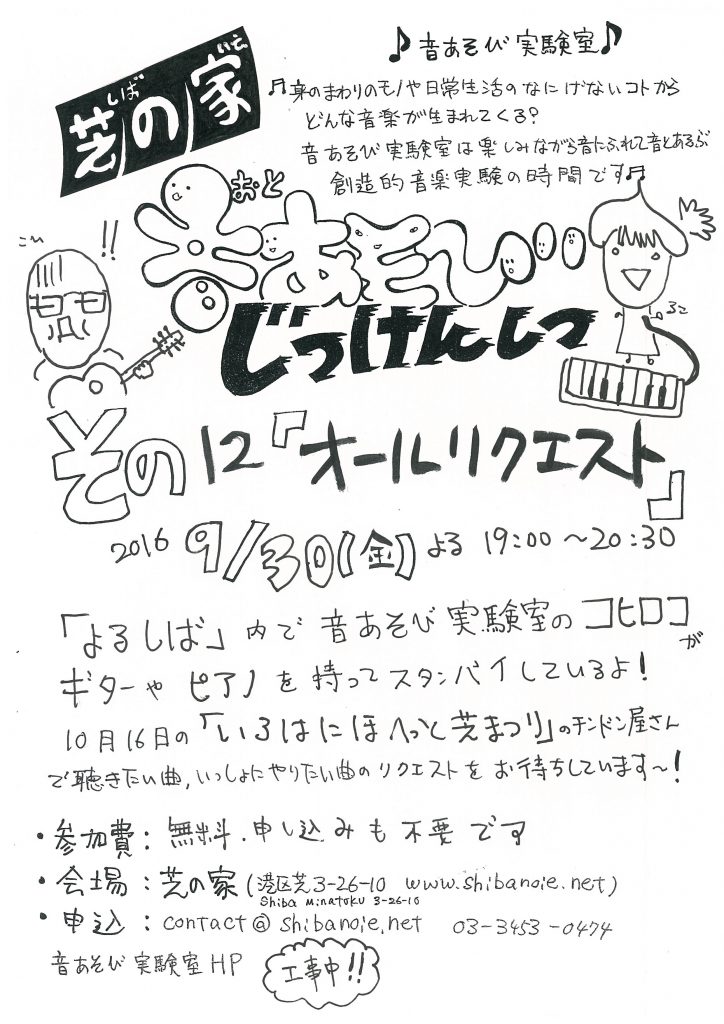 しば いえ
芝の家
♪音あそび実験室♪
♬身のまわりのモノや日常生活のなにげないコトから
どんな音楽が生まれてくる?
音あそび実験室は楽しみながら音にふれて音とあそぶ
創造的音楽実験の時間です♬
おと
音あそび
じっけんしつ
こひ
!!
ろこ
その12『オールリクエスト』
2016 9/30(金)よる 19:00〜20:30
「よるしば」内で音あそび実験室のコヒロコが
ギターやピアノを持ってスタンバイしているよ!
10月16日の「いろはにほへっと芝まつり」のチンドン屋さん
で聴きたい曲,いっしょにやりたい曲のリクエストをお待ちしています〜!
・参加費:無料.申し込みも不要です
・会場:芝の家(港区芝3-26-10 www.shibanoie.net)
Shiba Minatoku 3-26-10
・申込:contact@shibanoie.net 03-3453-0474
音あそび実験室HP 工事中!!